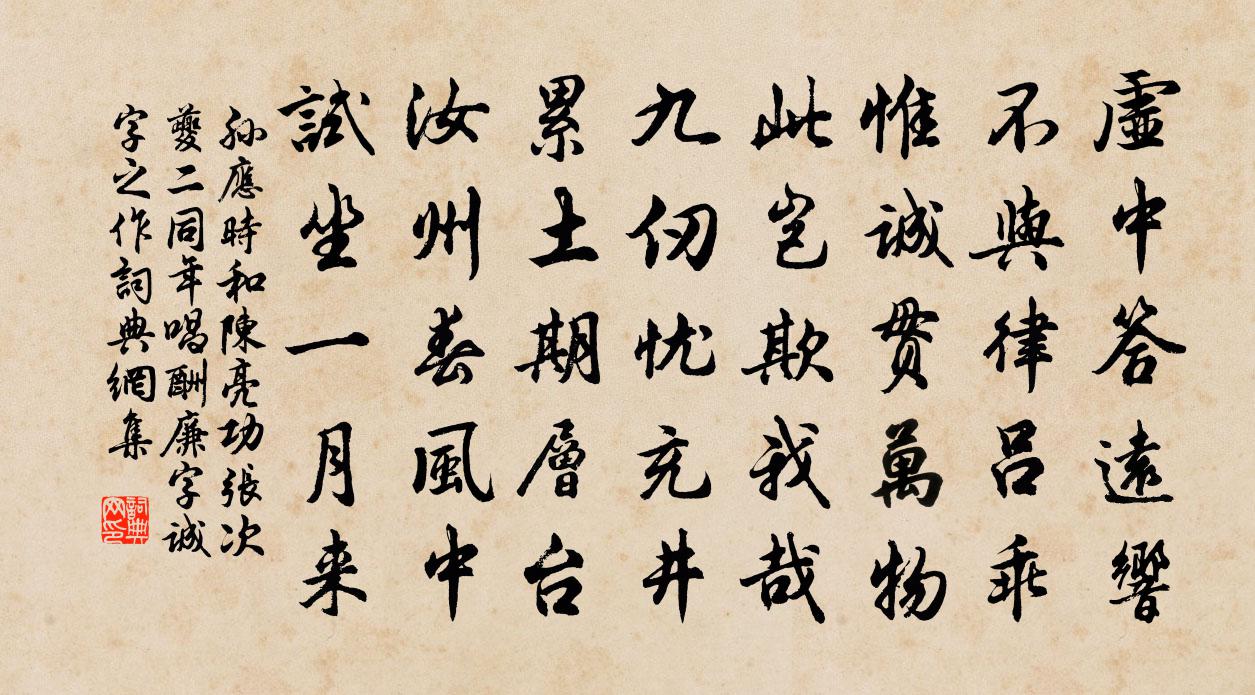 虛中答遠響
不與律呂乖
惟誠貫萬物
此豈欺我哉
九仞忧充井
累土期層台
汝州春風中
試坐一月来
孙應時和陳亮功張次
夔二同年唱酬廉字誠
字之作詞典網集
詞典网印